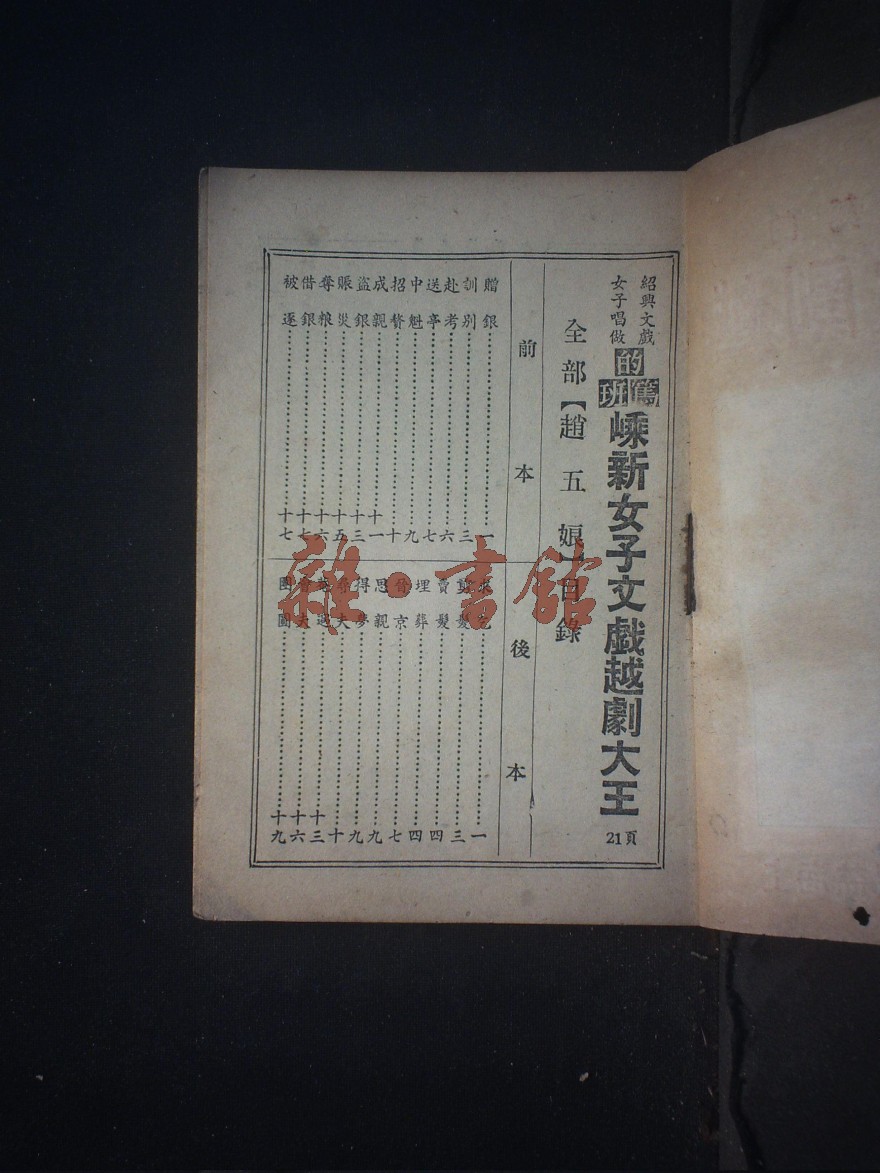 紹興文戲
女子唱做
的篤班
嵊新女子文戲越劇大王
21頁
全部【趙五娘】目錄
前本
贈銀⋯⋯一
訓別⋯⋯三
赴考⋯⋯六
送亭⋯⋯七
中魁⋯⋯九
招贅⋯⋯十
成親⋯⋯十一
盜銀⋯⋯十三
賑災⋯⋯十五
奪粮⋯⋯十六
借銀⋯⋯十七
被逐⋯⋯十七
後本
求⋯⋯一
剪髮⋯⋯三
賣髮⋯⋯四
埋葬⋯⋯四
晉京⋯⋯七
思親⋯⋯九
得夢⋯⋯九
尋夫⋯⋯十
遇⋯⋯十三
會夫⋯⋯十六
團圓⋯⋯十九
雜·書館